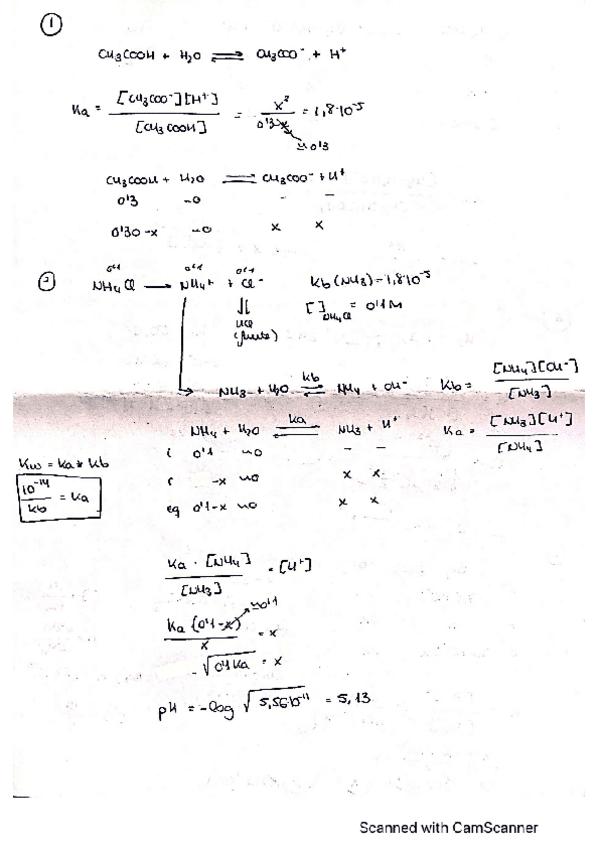 ①
CH3COOH + H2O ⇌ CH3COO⁻ + H⁺
Ka = [CH3COO⁻][H⁺] / [CH3COOH] = x² / 0'3-x = 1,8·10⁻⁵
≈ 0'3
CH3COOH + H2O ⇌ CH3COO⁻ + H⁺
0'3 ∞ - -
0'30-x ∞ x x
②
0'1 0'1 0'1
NH4Cl → NH4⁺ + Cl⁻ Kb (NH3) = 1,8·10⁻⁵
[ ]NH4Cl = 0'1 M
HCl
(fuerte)
NH3 + H2O ⇌ NH4 + OH⁻ Kb = [NH4][OH⁻] / [NH3]
kb
NH4 + H2O ⇌ NH3 + H⁺ Ka = [NH3][H⁺] / [NH4]
ka
i 0'1 ∞ - -
r -x ∞ x x
eq 0'1-x ∞ x x
Kw = Ka * Kb
10⁻¹⁴ / Kb = Ka
Ka · [NH4] / [NH3] = [H⁺]
Ka (0'1-x) / x = x
≈ 0'1
√0'1Ka = x
pH = -log √5,56·10⁻¹¹ = 5,13
Scanned with CamScanner